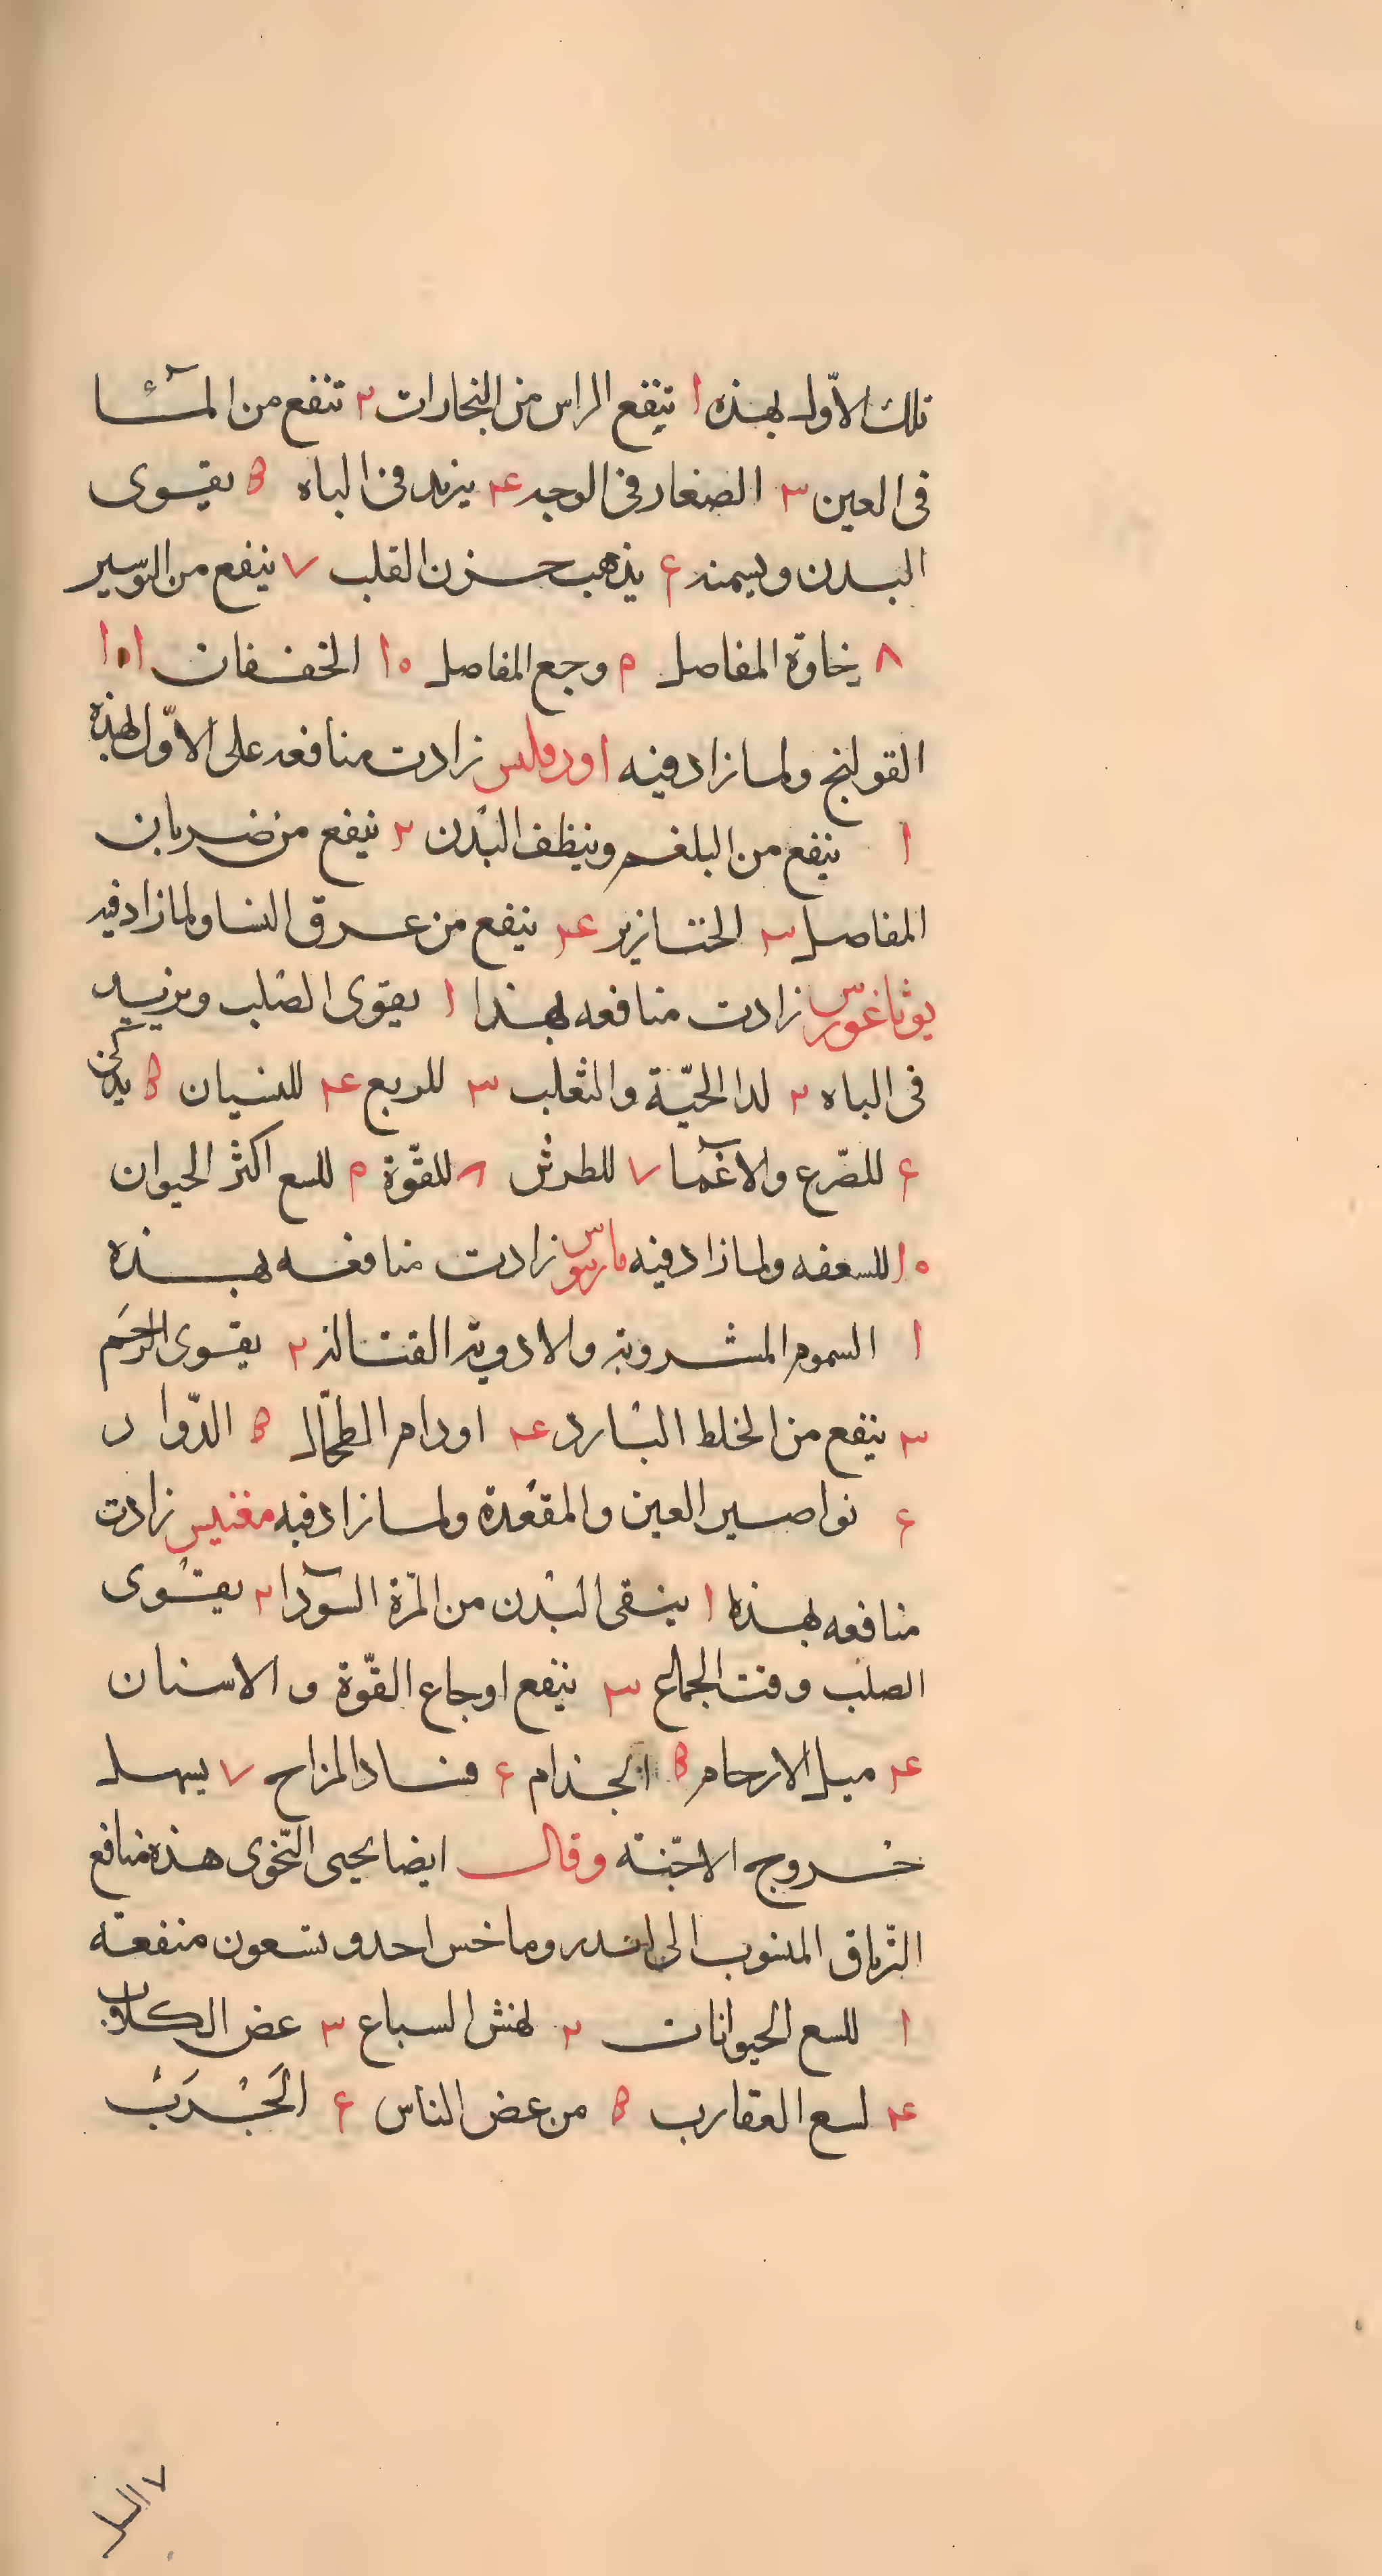 تلك الاوّل بهذه ١ تنفع الراس من البخارات ٢ تنفع من المآء
فى العين ٣ الصغار فى الوجه ٤ يزيد فى الباه ٥ يقوى
البدن ويسمنه ٦ يذهب حزن القلب ٧ ينفع من البوسير
٨ رخاوة المفاصل ٩ وجع المفاصل ١٠ الخفقان ١١
القولنج ولما زاد فيه زادت منافعه على الاوّل بهذه
١ ينفع من البلغم وينظف البدن ٢ ينفع من ضربان
المفاصل ٣ الخنازير ٤ ينفع من عرق النسا ولما زاد فيه
يوثاغورس زادت منافعه بهذا ١ يقوى الصلب ويزيد
فى الباه ٢ لدا الحيّة والثعلب ٣ للربع ٤ للنسيان ٥ يذكى
٦ للصّرع والاغمآ ٧ للطرش ٨ للقّوة ٩ للسع اكثر الحيوان
١٠ للسعفه ولما زاد فيه مارينوس زادت منافعه بهذه
١ السموم المشروبة والادوية القتالة ٢ يقوى الرحَم
٣ ينفع من الخلط البارد ٤ اورام الطحّال ٥ الدّوار
٦ نواصير العين والمقعدة ولما زاد فيه مغنيس زادت
منافعه بهذه ١ ينقى البدن من المرّة السوّدآ ٢ يقوى
الصلب وقت الجماع ٣ ينفع اوجاع القّوة والاسنان
٤ ميل الارحام ٥ الجذام ٦ فساد المزاج ٧ يسهل
خروج الاجّنة وقال ايضا يحيى النّحوى هذه منافع
التّرياق المنسوب الى اندروماخس احد وتسعون منفعة
١ للسع الحيوانات ٢ لهش السباع ٣ عض الكلاب
٤ لسع العقارب ٥ من عض الناس ٦ الَجْرَبْ